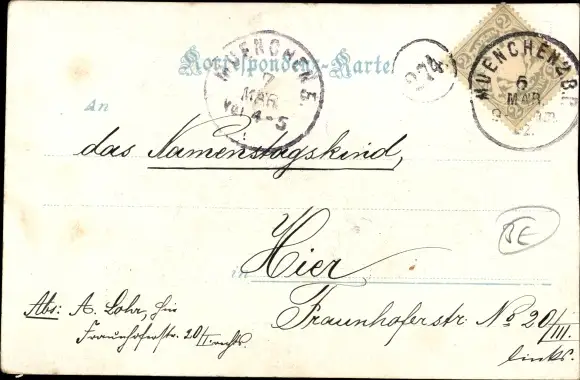 Korrespondenz-Karte
MUENCHEN 5.
7
MAR
4-5
274
2
MUENCHEN 2 B.P.
6
MAR
An
das Namenstagskind,
in Hier
BE
Fraunhoferstr. No 20/III.
links.
Abs: A. Lohr, hier
Fraunhoferstr. 20/I rechts.